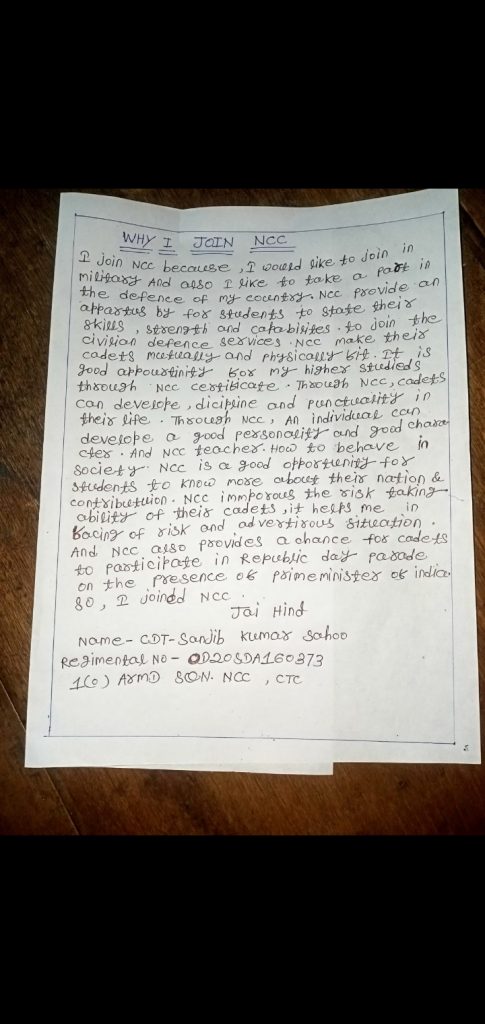 WHY I JOIN NCC
I join NCC because, I would like to join in
military And also I like to take a part in
the defence of my country. NCC provide an
appartus by for students to state their
skills, strength and capabisites. to join the
civisian defence services. NCC make their
cadets mutually and physically bit. It is
good appourtinity for my higher studieds
through NCC certificate. Through NCC, cadets
can develope, dicipline and punctuality in
their life. Through NCC, An individual can
develope a good personality and good chara
cter. And NCC teacher. How to behave in
society. NCC is a good opportunity for
students to know more about their nation &
contributtuion. NCC immporous the risk taking
ability of their cadets, it helps me in
facing of risk and advertirous situation.
And NCC also provides a chance for cadets
to participate in Republic day parade
on the presence of primeminister of indica
so, I joindd NCC.
Jai Hind
Name - CDT - Sandib Kumar Sahoo
Regimental NO - OD20SDA160373
1(O) ARMD SQN. NCC, CTC